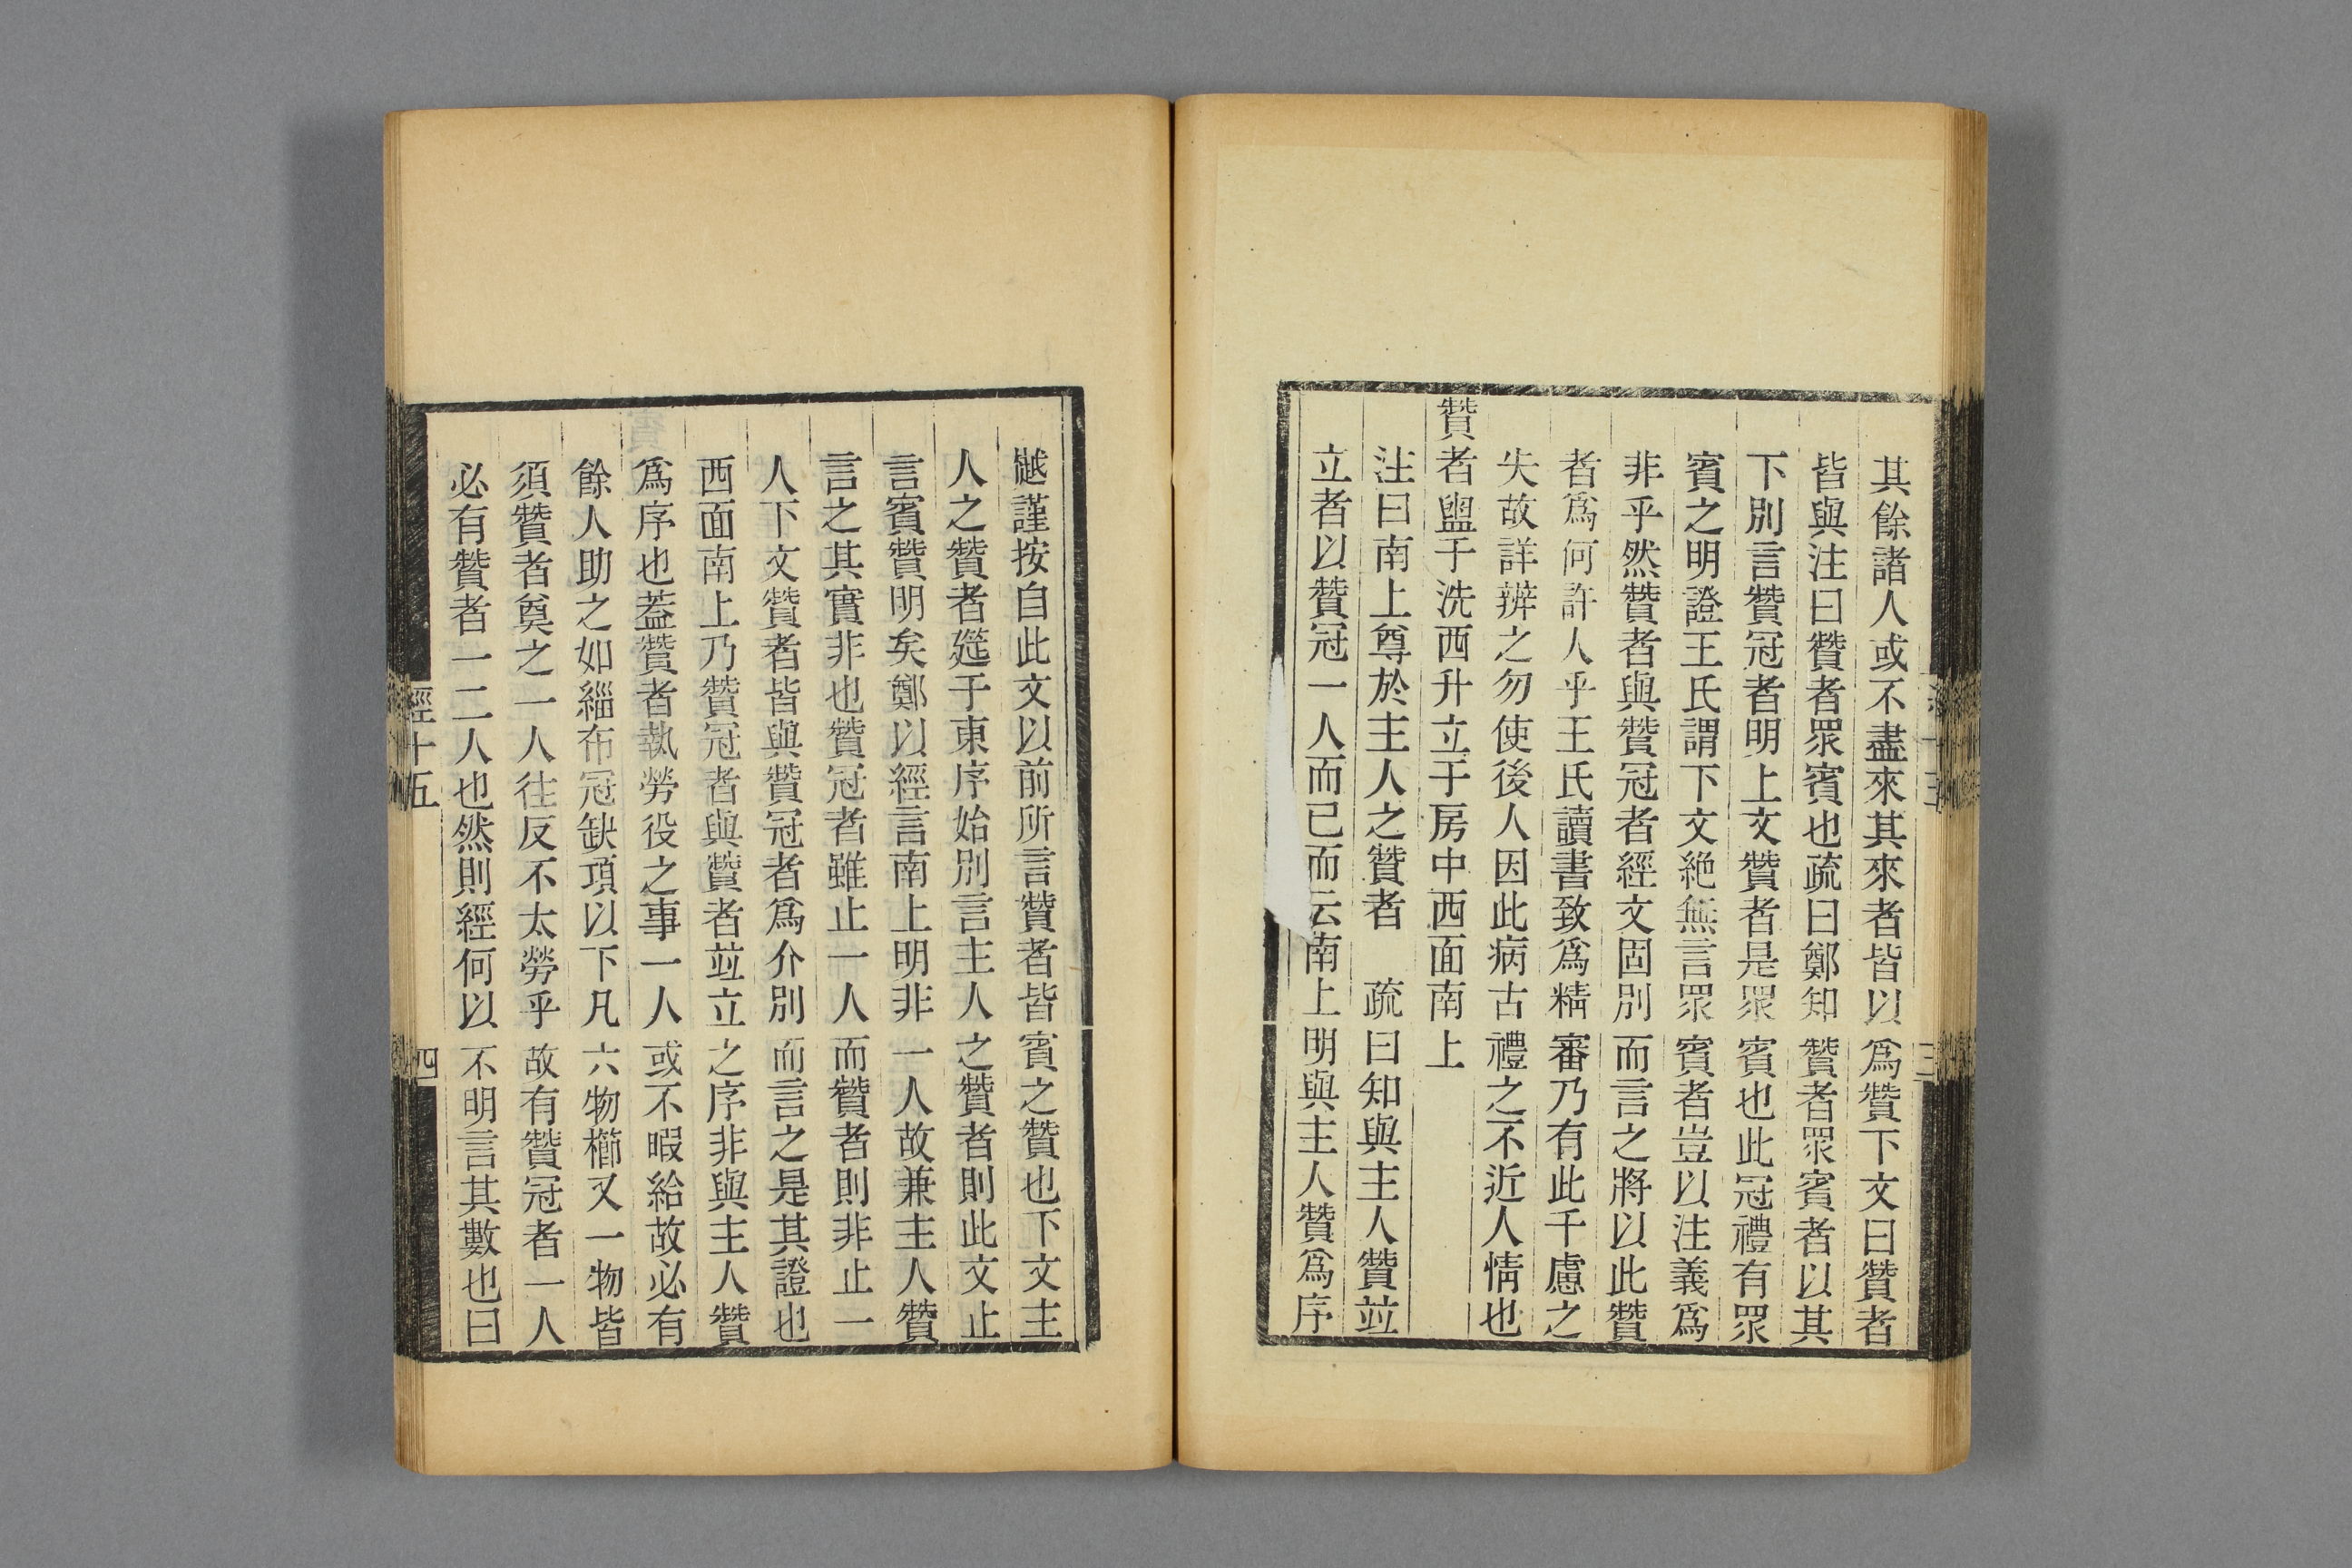 其餘諸人或不盡來其來者皆以爲贊下文曰贊者
皆與注曰贊者眾賓也疏曰鄭知贊者眾賓者以其
下別言贊冠者明上文贊者是眾賓也此冠禮有眾
賓之明證王氏謂下文絶無言眾賓者豈以注義爲
非乎然贊者與贊冠者經文固別而言之將以此贊
者爲何許人乎王氏讀書致爲精審乃有此千慮之
失故詳辨之勿使後人因此病古禮之不近人情也
贊者盥于洗西升立于房中西面南上
注曰南上尊於主人之贊者　疏曰知與主人贊竝
立者以贊冠一人而已而云南上明與主人贊爲序
樾謹按自此文以前所言贊者皆賓之贊也下文主
人之贊者筵于東序始別言主人之贊者則此文止
言賓贊明矣鄭以經言南上明非一人故兼主人贊
言之其實非也贊冠者雖止一人而贊者則非止一
人下文贊者皆與贊冠者爲介別而言之是其證也
西面南上乃贊冠者與贊者竝立之序非與主人贊
爲序也葢贊者執勞役之事一人或不暇給故必有
餘人助之如緇布冠缺項以下凡六物櫛又一物皆
須贊者奠之一人往反不太勞乎故有贊冠者一人
必有贊者一二人也然則經何以不明言其數也曰
經十五
四